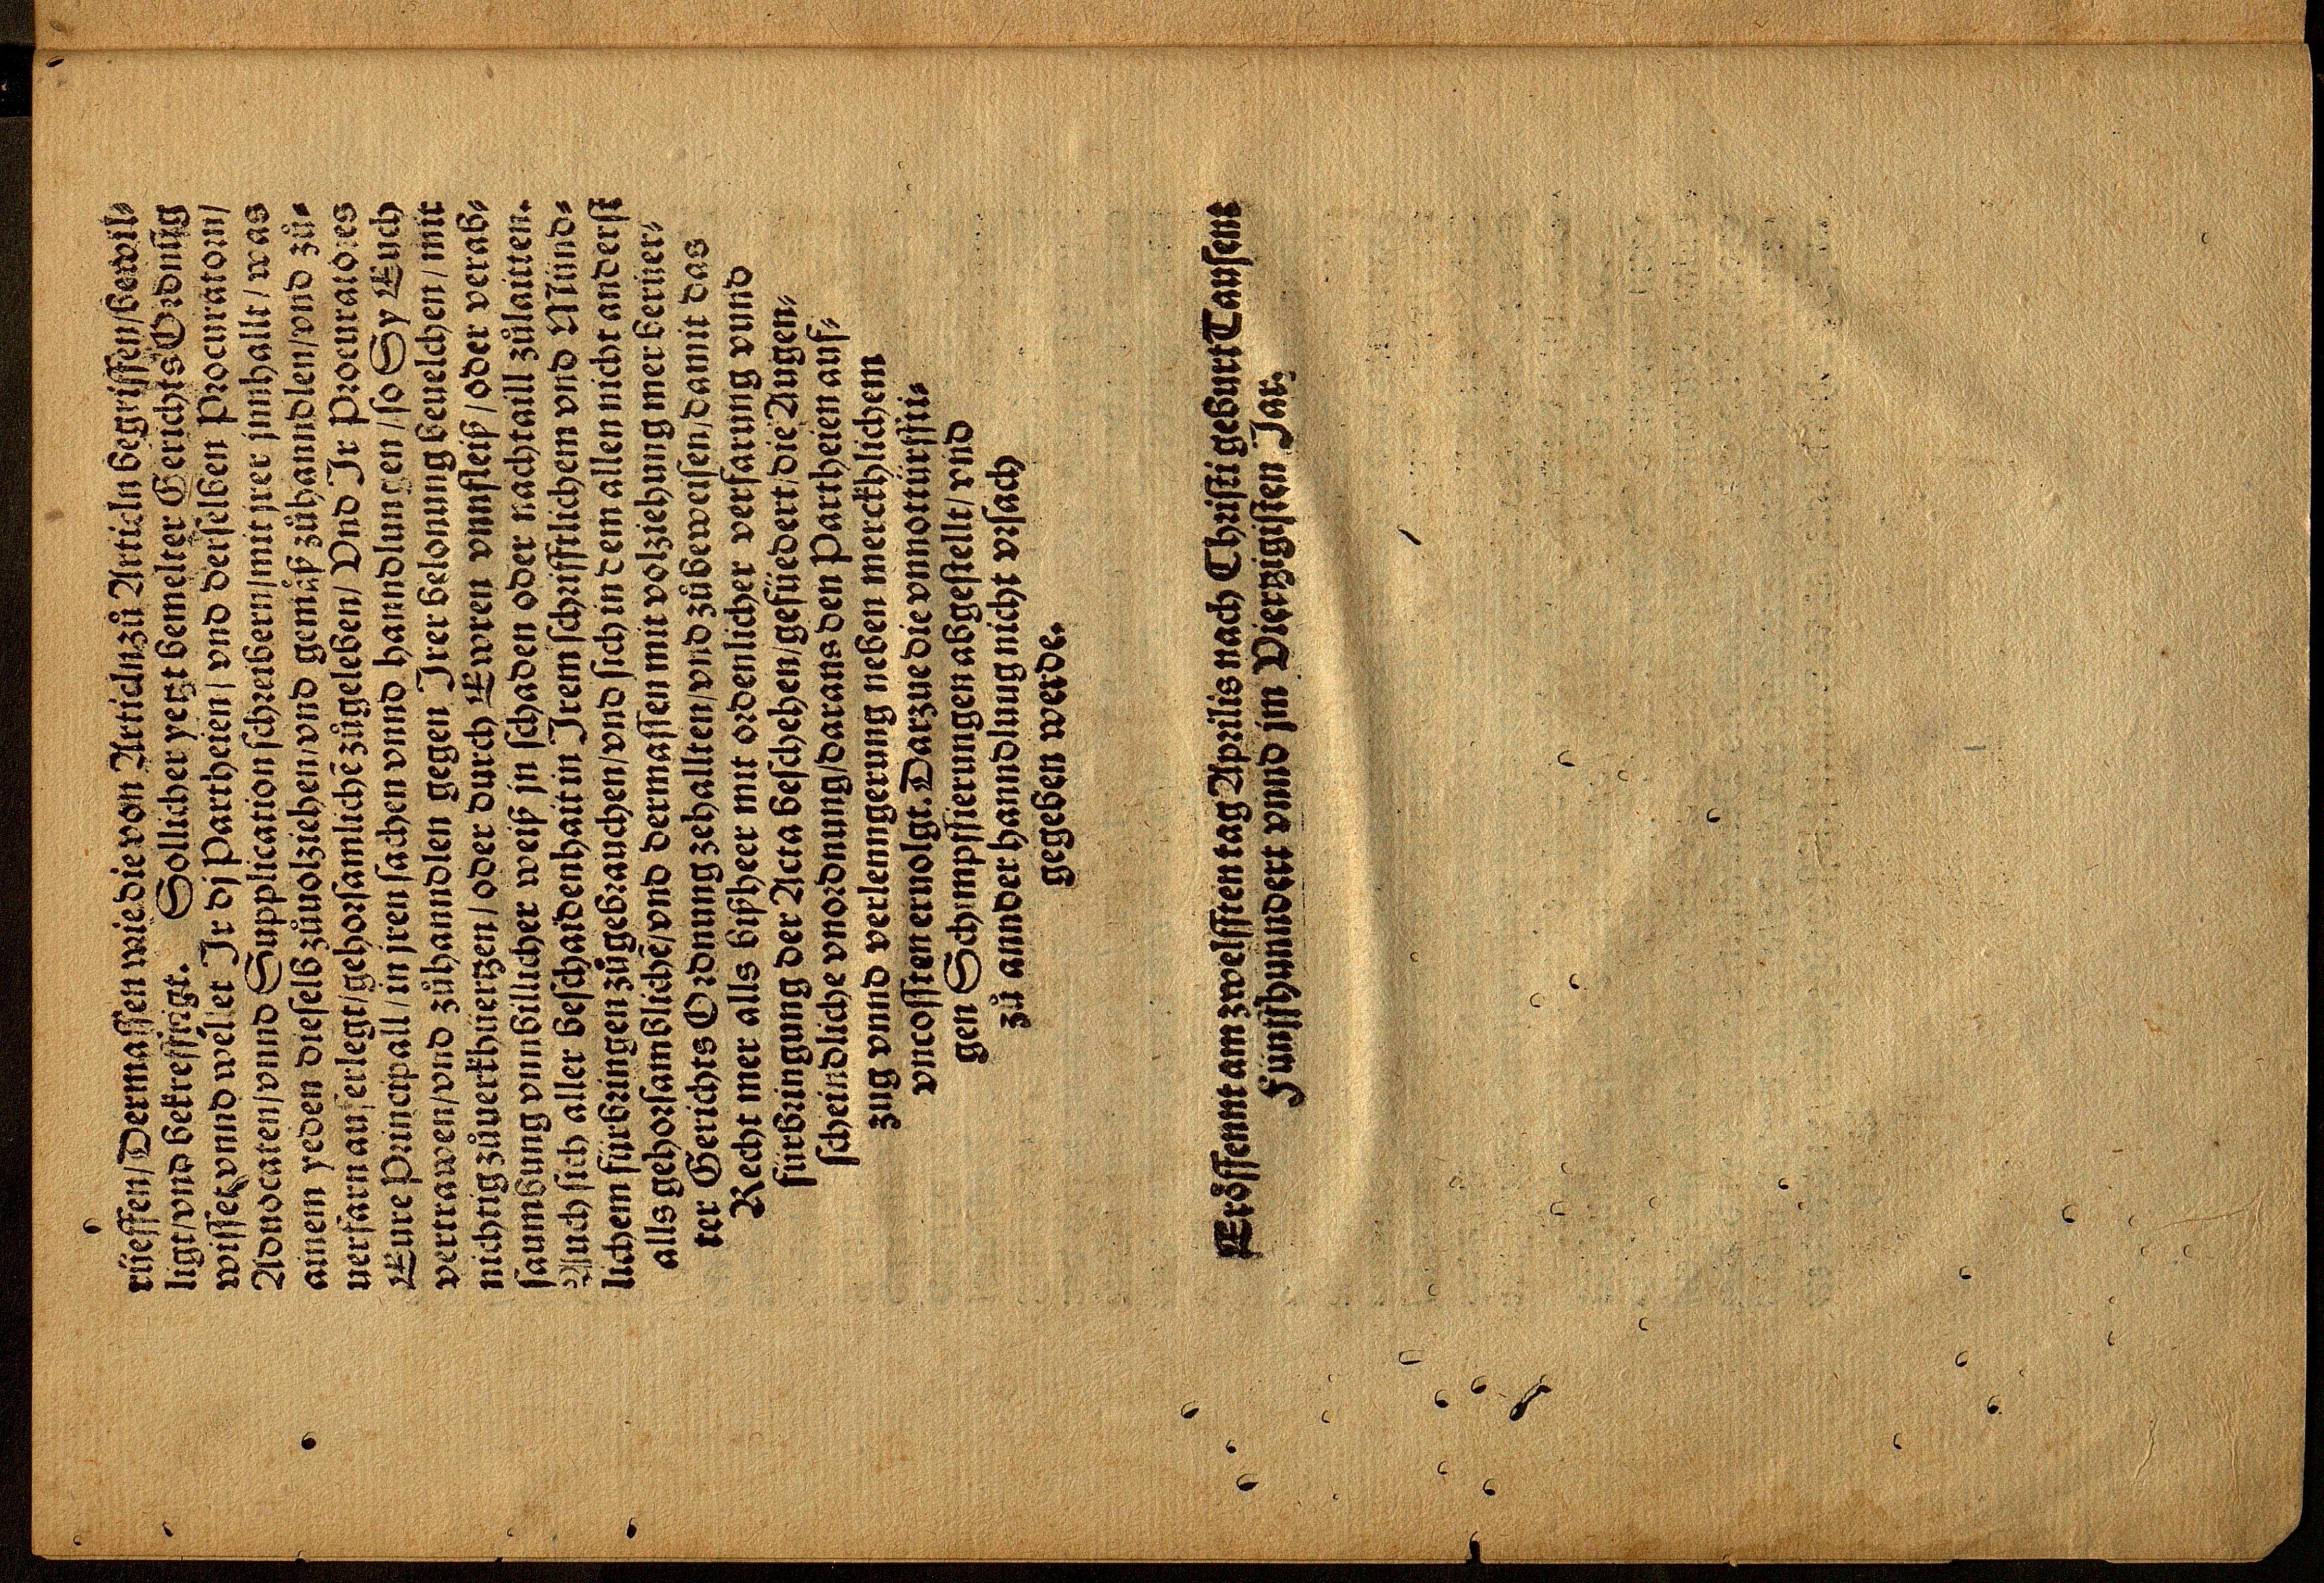 rüeffen/Dermassen wie die von Articln zů Articln begriffen/bewil⸗
ligt/vnd bekrefftigt. Sollicher yetzt bemelter Gerichts Ordnũg
wisset vnnd wellet Jr dj Partheien/vnd derselben Procuratorn/
Aduocaten/vnnd Supplication schreibern/mit jrer jnnhallt/was
ainem yeden dieselb zůuolziehen/vnd gemäß zůhanndlen/vnd zů⸗
uerfarn auferlegt/gehorsamlichẽ zůgeleben/Vnd Jr Procuratores
Eure Principall/in jren sachen vnnd hanndlungen/so Sy Euch
vertrawen/vnd zůhanndlen gegen Jrer belonung beuelchen/mit
nichtig zůuerkhüertzen/oder durch Ewren vnnfleiß/oder verab⸗
saumbung vnnbillicher weiß jn schaden oder nachtaill zůlaitten.
Auch sich aller beschaidenhait in Jrem schrifftlichem vnd Münd⸗
lichem fürbringen zůgebrauchen/vnd sich in dem allen nicht anderst
alls gehorsamblichẽ/vnd dermassen mit volziehung mer berüer⸗
ter Gerichts Ordnung zehallten/vnd zůbeweisen/damit das
Recht mer alls bißheer mit ordenlicher verfarung vnnd
fürbringung der Acta beschehen/gefüedert/die Augen⸗
scheindliche vnordnung/daraus den Partheien auf⸗
zug vnnd verlenngerung neben merckhlichem
vncossten eruolgt. Darzue die vnnottürffti⸗
gen Schmpffierungen abgestellt/vnd
zů annder hanndlung nicht vrsach
gegeben werde.
Eröffennt am zwelfften tag Aprilis nach Christi geburt Tausent
Fünffhunndert vnnd jm Viertzigisten Jar.